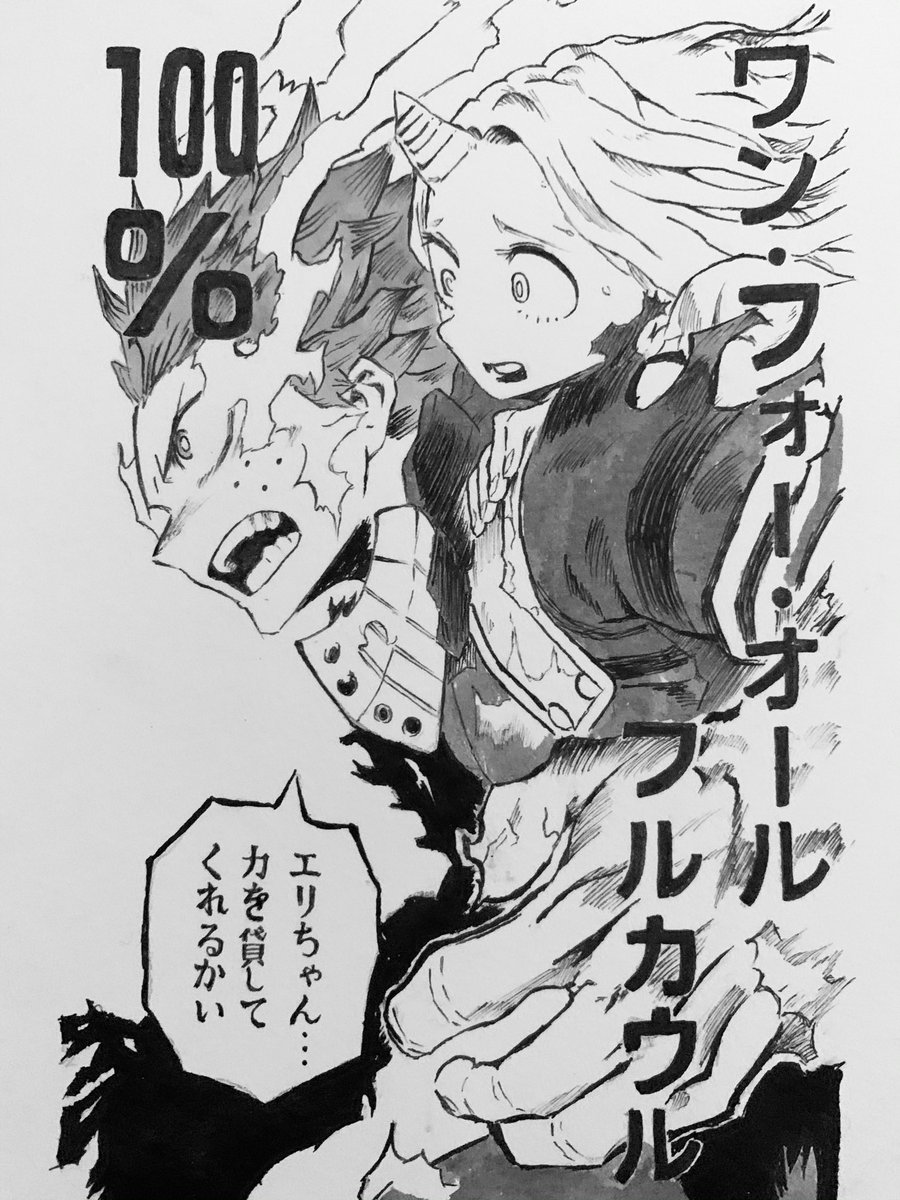 ワン・フォー・オール
フルカウル
100
%
エリちゃん…
力を貸して
くれるかい